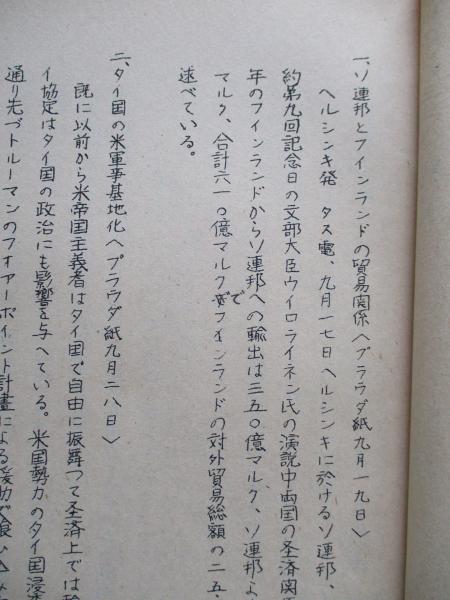 一、ソ連邦とフインランドの貿易関係〈プラウダ紙九月一九日〉
ヘルシンキ発 タス電、九月一七日ヘルシンキに於けるソ連邦、
約第九回記念日の文部大臣ウイロライネン氏の演説中両国の圣済関
年のフインランドからソ連邦への輸出は三五〇億マルク、ソ連邦よ
マルク、合計六一〇億マルクでフインランドの対外貿易総額の二五.
述べている。
二、タイ国の米軍事基地化〈プラウダ紙九月二八日〉
既に以前から米帝国主義者はタイ国で自由に振舞つて圣済上では
イ協定はタイ国の政治にも影響を与へている。米国勢力のタイ国浸
通り先づトルーマンのフオアーポイント計畫による援助で